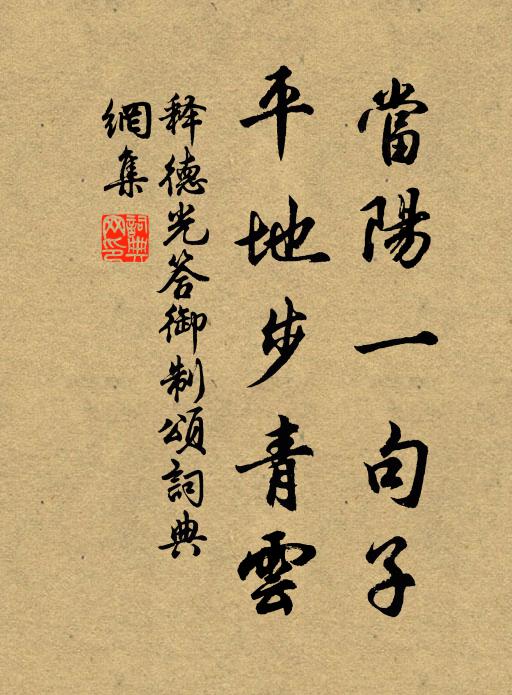 當陽一句子
平地步青雲
释德光答御制頌詞典
網集
詞典
网印